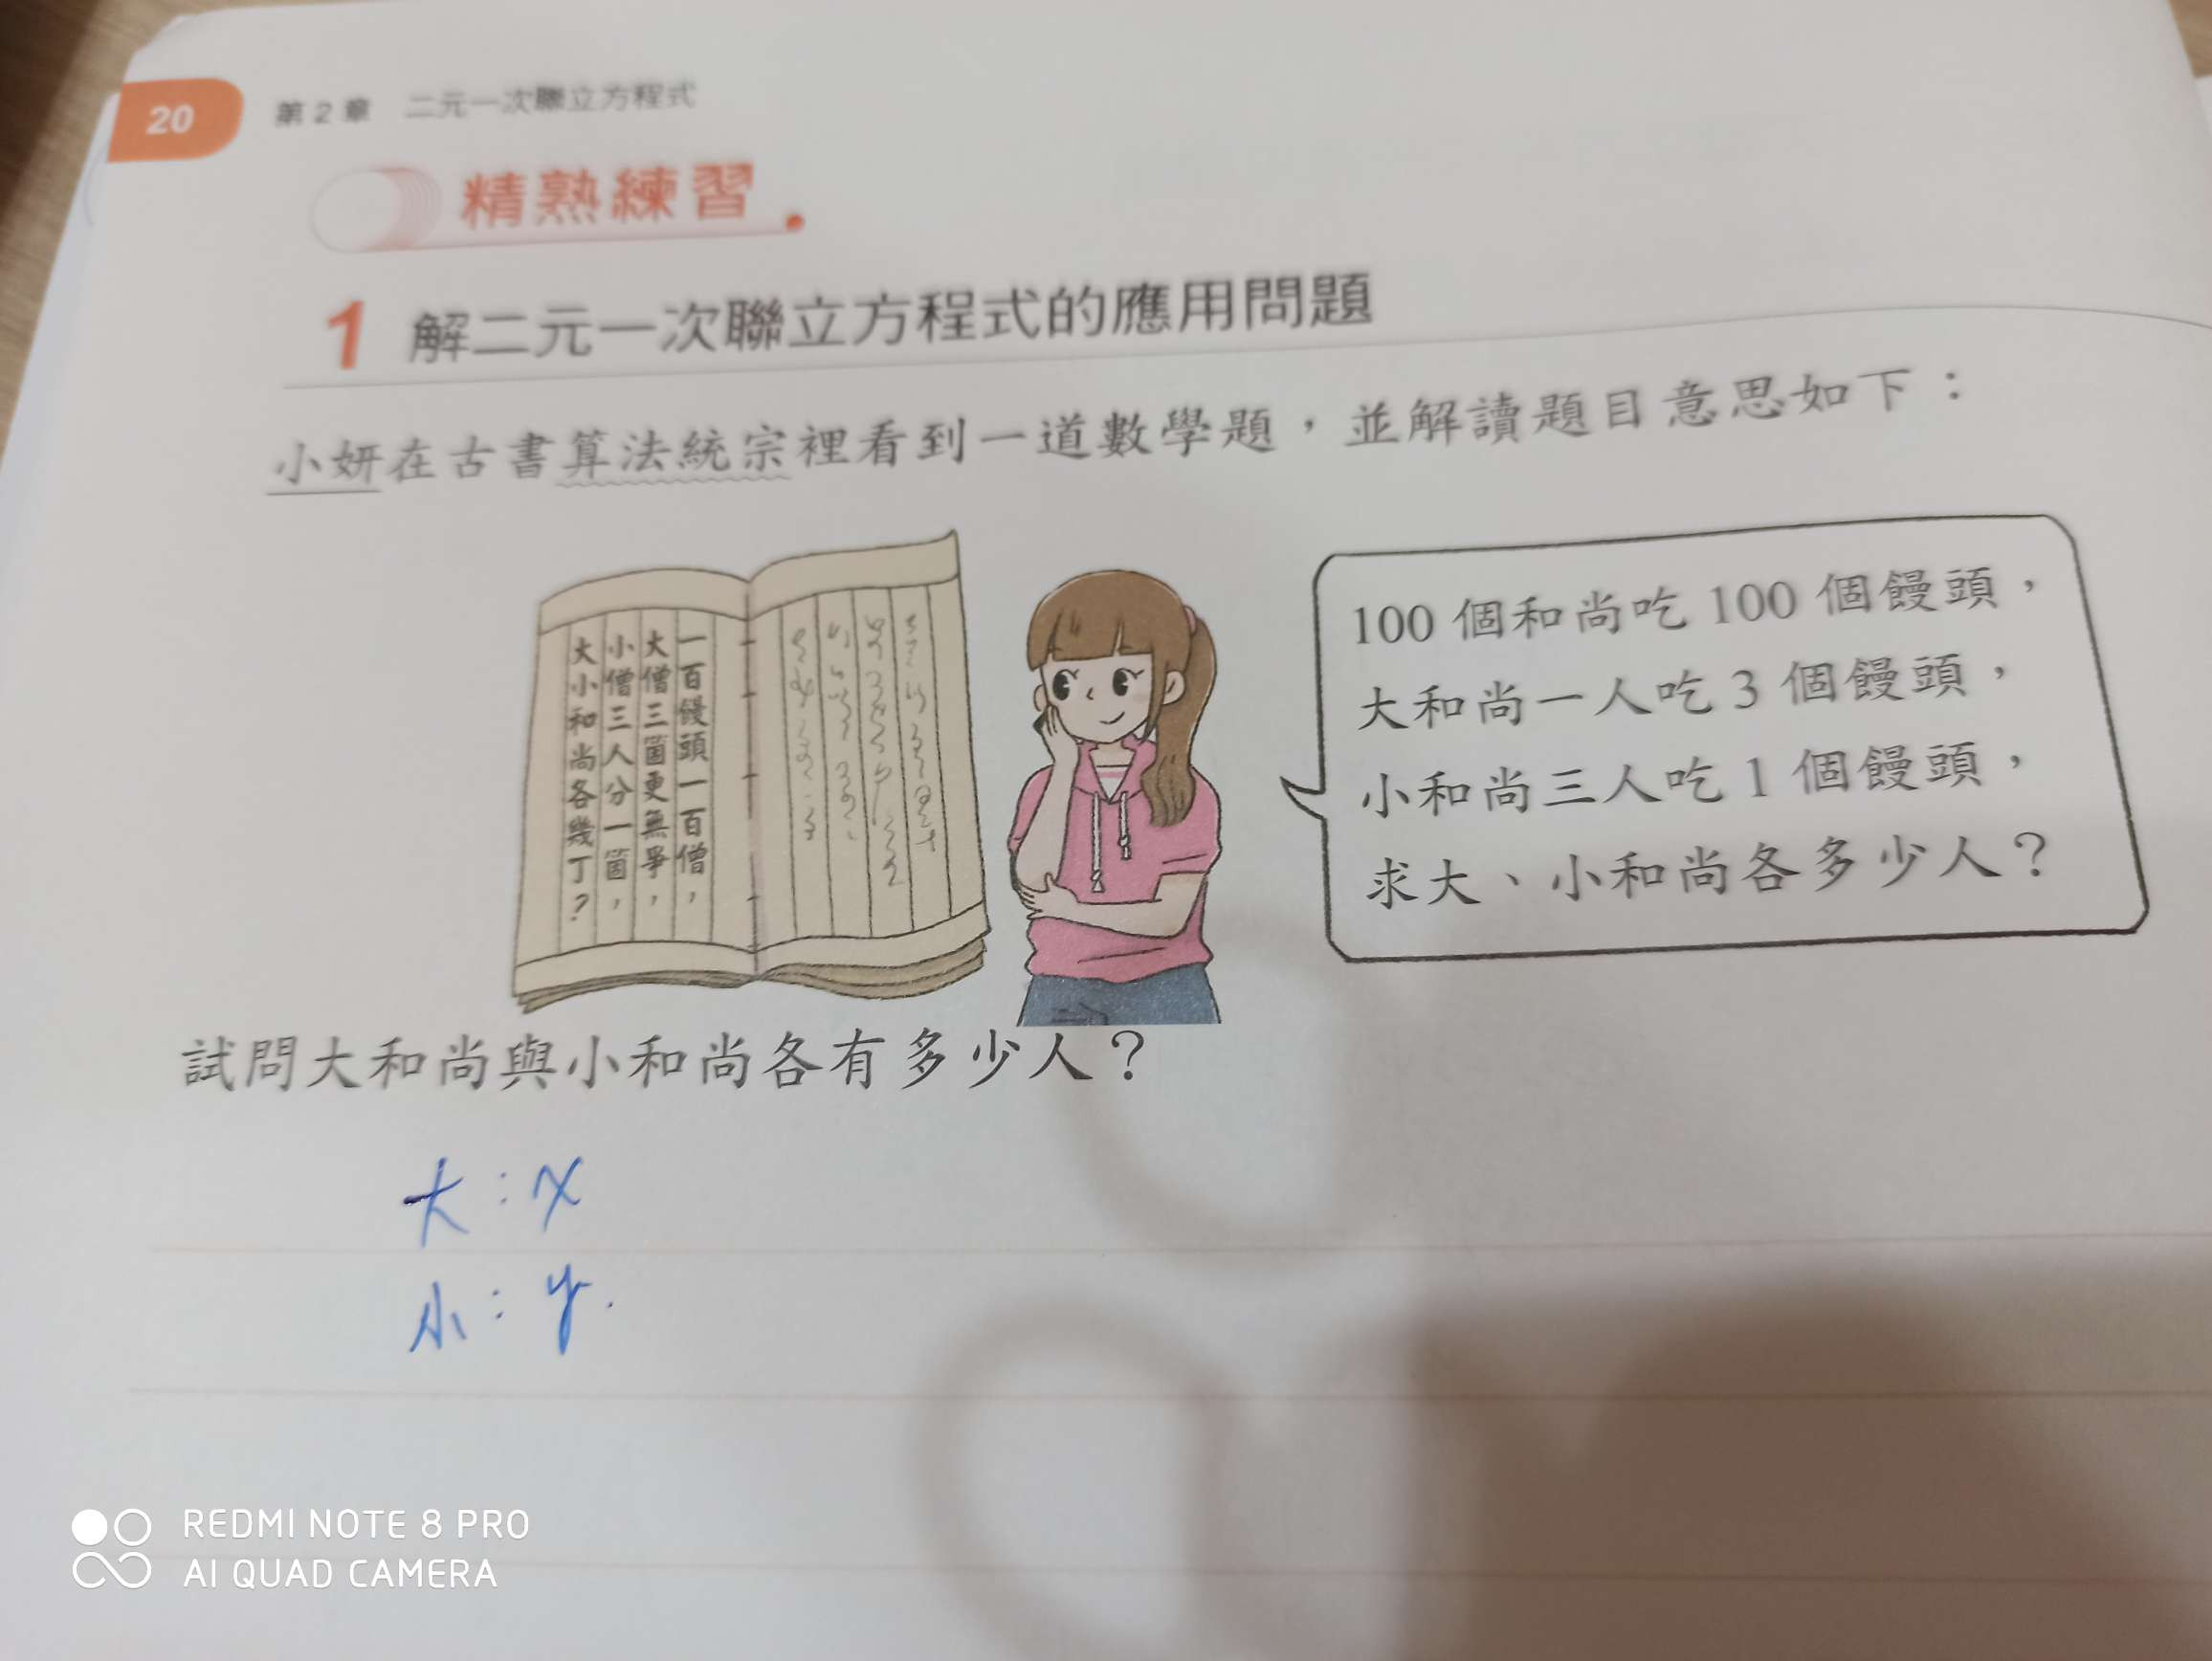 20 第2章 二元一次聯立方程式
精熟練習
1 解二元一次聯立方程式的應用問題
小妍在古書算法統宗裡看到一道數學題，並解讀題目意思如下：
一百饅頭一百僧，
大僧三箇更無爭，
小僧三人分一箇，
大小和尚各幾丁？
100 個和尚吃 100 個饅頭，
大和尚一人吃 3 個饅頭，
小和尚三人吃 1 個饅頭，
求大、小和尚各多少人？
試問大和尚與小和尚各有多少人？
大：x
小：y.
REDMI NOTE 8 PRO
AI QUAD CAMERA